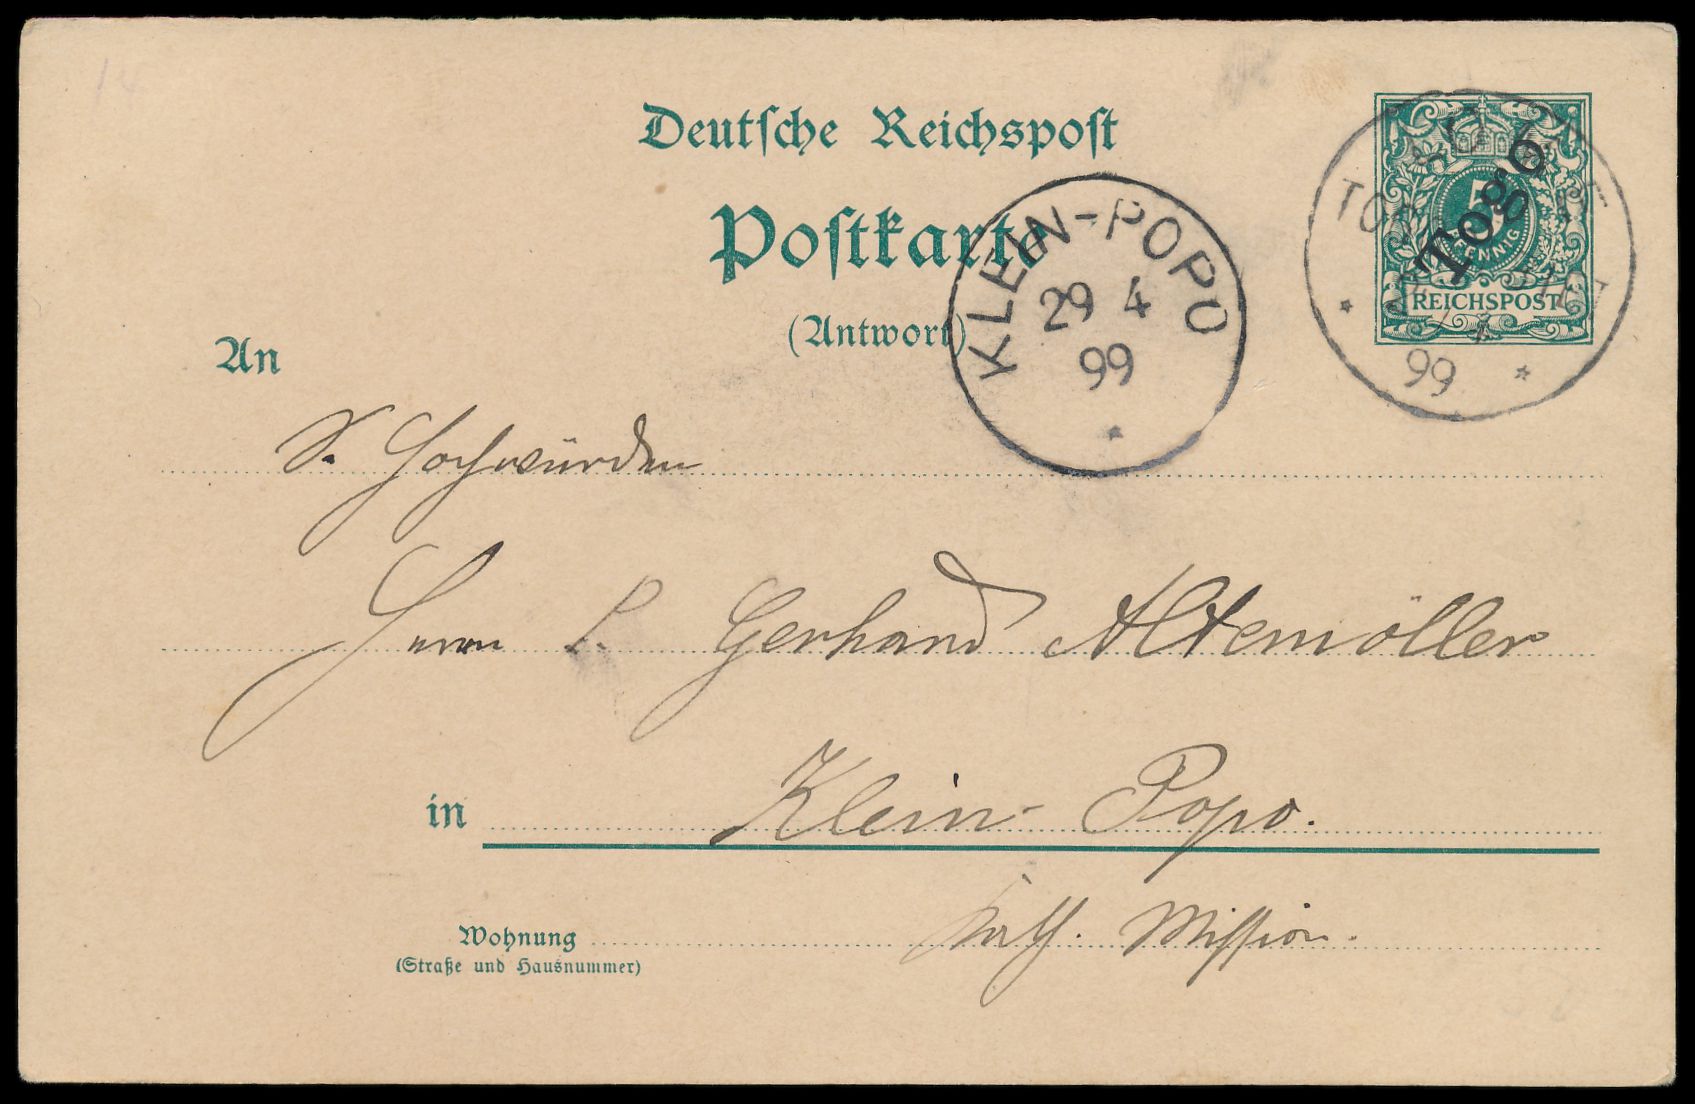 14
Deutsche Reichspost
Postkarte
(Antwort)
5
PFENNIG
REICHSPOST
Togo
99
KLEIN-POPO
29 4
99
An
S. Hochwürden
Herrn P. Gerhard Altemöller
in Klein-Popo.
Wohnung Kath. Mission.
(Straße und Hausnummer)